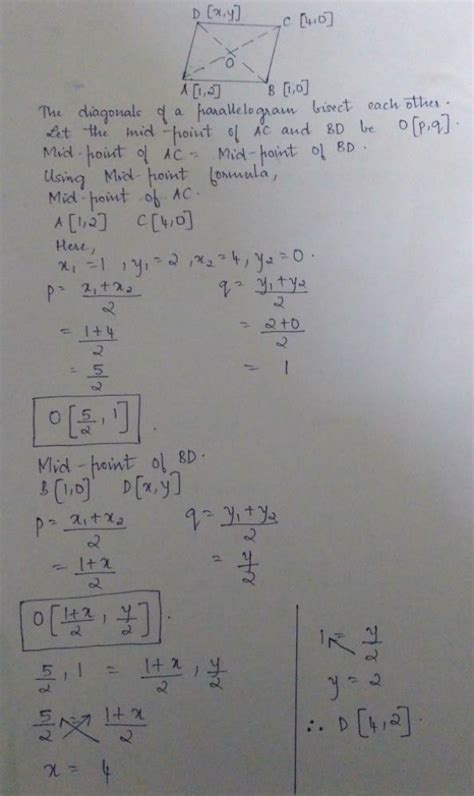 D [x,y]
C [4,0]
O
A [1,2]
B [1,0]
The diagonals of a parallelogram bisect each other.
Let the mid-point of AC and BD be O[p,q].
Mid-point of AC = Mid-point of BD.
Using Mid-point formula,
Mid-point of AC.
A [1,2] C [4,0]
Here,
x₁ = 1, y₁ = 2, x₂ = 4, y₂ = 0.
p = (x₁+x₂)/2 q = (y₁+y₂)/2
= (1+4)/2 = (2+0)/2
= 5/2 = 1
O[5/2, 1].
Mid-point of BD.
B [1,0] D [x,y]
p = (x₁+x₂)/2 q = (y₁+y₂)/2
= (1+x)/2 = y/2
O[(1+x)/2, y/2].
5/2, 1 = (1+x)/2, y/2
5/2 = (1+x)/2
x = 4
1 = y/2
y = 2
∴ D [4,2].